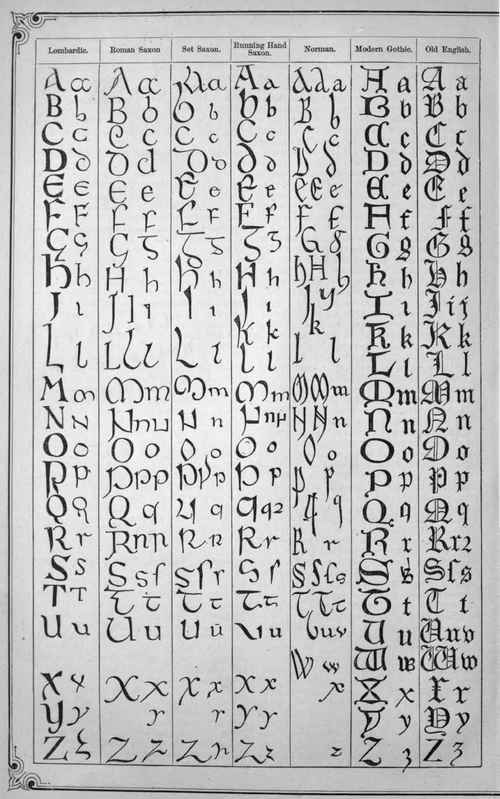 Lombardic. Roman Saxon Set Saxon. Running Hand Saxon. Norman. Modern Gothic. Old English.
A a A a A a A a A a a A a A a
B b B b B b B b B b B b B b
C c C c C c C c C c C c C c
D d D d D d D d D d D d D d
E e E e E e E e E E e E e E e
F f F f F f F f F f F f F f
G g G g G g G g G g G g G g
H h H h H h H h h H h H h H h
J ı J J ı I ı J ı J y I ı J i j
K k k K k K k
L l L l L l L l L l L l L l
M m M m M m M m M M m M m M m
N n N n u N n N n N N n N n N n
O o O o O o O o O o O o O o
P p P p p P p P p P p P p P p
Q q Q q Q q Q q Q q Q q Q q
R r R r R r R r R r R r R r ꝛ
S s S s ſ S ſ S ſ S S s S s S ſ s
T t T t T t T t T T t T t T t
U u U u U u U u U u v U u U u v
W w W w W w
X x X x X x X x x X x X x
Y y y y Y y Y y Y y
Z z Z z Z Z z z Z z Z z